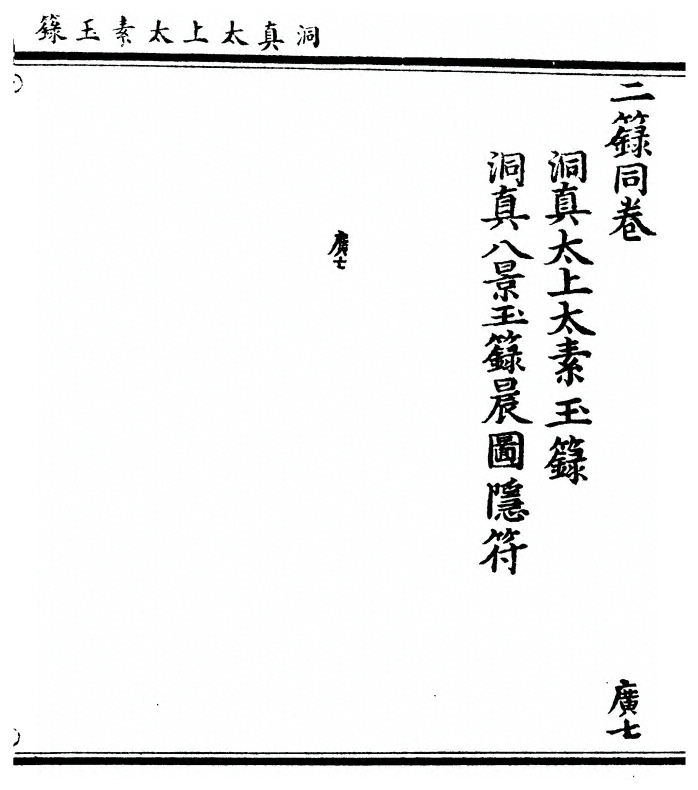 洞真太上太素玉籙
二籙同卷
廣七
洞真太上太素玉籙
洞真八景玉籙晨圖隱符
廣七